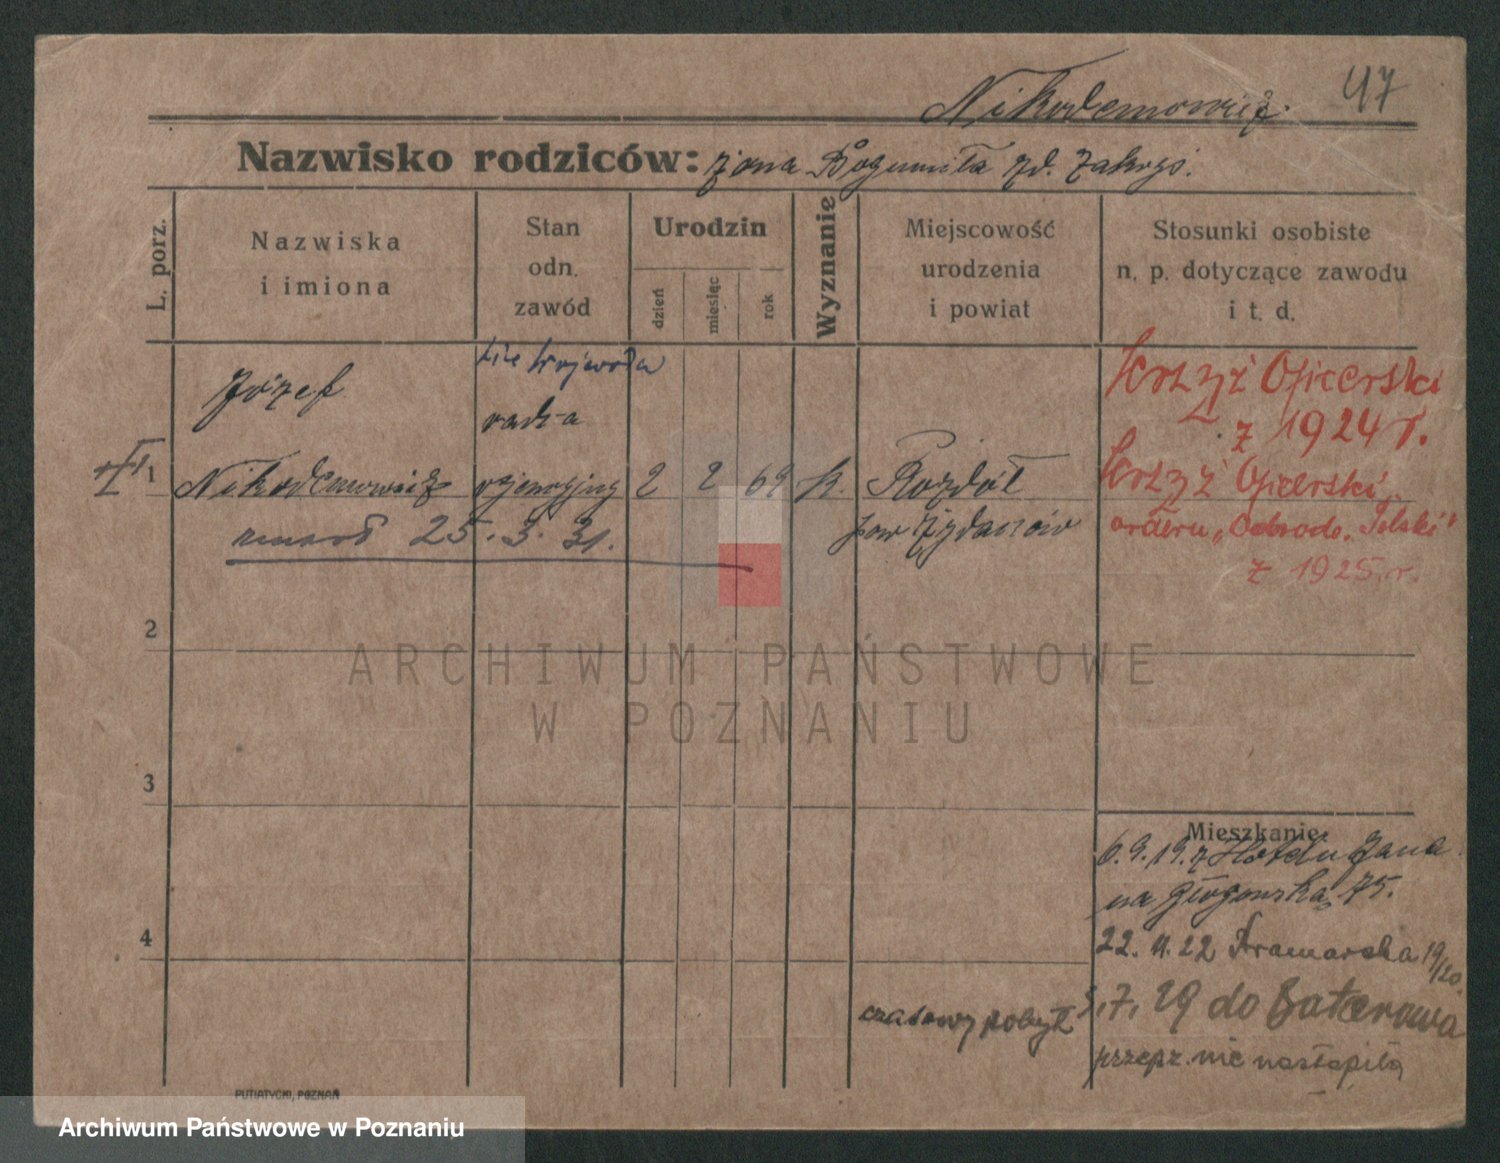 Nikodemowicz. 47
Nazwisko rodziców: żona Bogumiła zd. Zakrys.
L. porz.
Nazwiska
i imiona
Stan
odn.
zawód
Urodzin
dzień
miesiąc
rok
Wyznanie
Miejscowość
urodzenia
i powiat
Stosunki osobiste
n. p. dotyczące zawodu
i t. d.
wojewoda
Józef
radca
1 Nikodemowicz 2 2 69 k. Rozdół
zmarł 25. 3. 31.
pow Żydaczów
Krzyż Oficerski
z 1924 r.
Krzyż Oficerski
orderu „Odrodz. Polski"
z 1925. r.
2
3
4
Mieszkanie:
6.9.19. z Hotelu Jana
na Głogowska 75.
22. 11. 22 Kramarska 19/20.
czasowy pobyt 3.7.29 do Zakopana
przepr. nie nastąpiła
PUTIATYCKI, POZNAŃ
ARCHIWUM PAŃSTWOWE
W POZNANIU
Archiwum Państwowe w Poznaniu